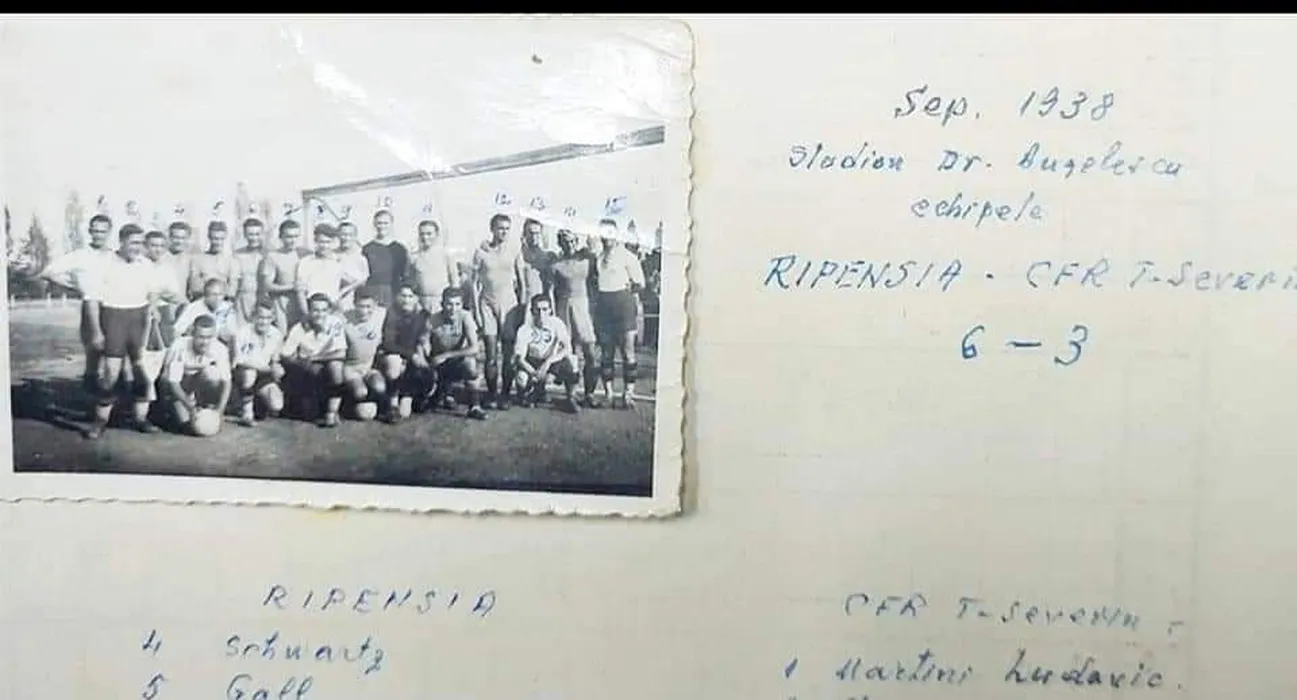 Sep. 1938
Stadion Dr. Angelescu
echipele
RIPENSIA - CFR T-Severin
6 - 3
1
4 5 6 7 8 9 10 11 12 13 14 15
RIPENSIA
4 Schwartz
5 Gall
CFR T-Severin :
1 Martini Ludovic.